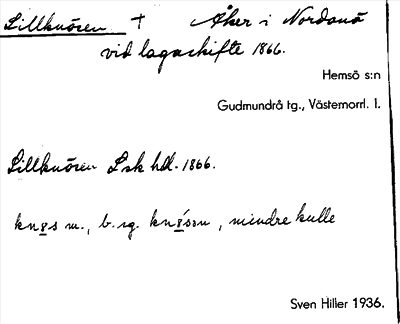 Lillknösen † Åker i Nordanå
vid lagaskifte 1866.
Hemsö s:n
Gudmundrå tg., Västernorrl. l.
Lillknösen Lsk hdl. 1866.
knøs m., b. sg. knø̀sən, mindre kulle
Sven Hiller 1936.